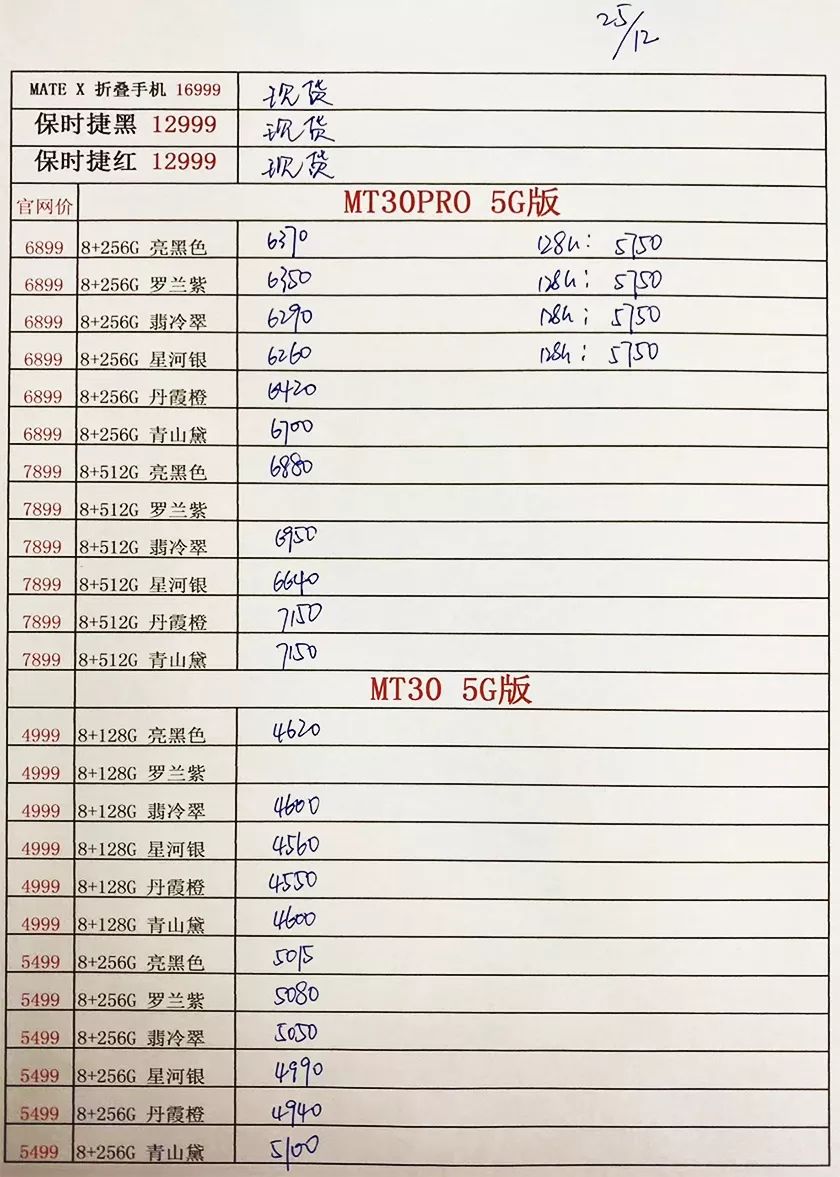 25/12
MATE X 折叠手机 16999 现货
保时捷黑 12999 现货
保时捷红 12999 现货
官网价 MT30PRO 5G版
6899 8+256G 亮黑色 6370 128G: 5750
6899 8+256G 罗兰紫 6350 128G: 5750
6899 8+256G 翡冷翠 6290 128G: 5750
6899 8+256G 星河银 6260 128G: 5750
6899 8+256G 丹霞橙 6420
6899 8+256G 青山黛 6700
7899 8+512G 亮黑色 6880
7899 8+512G 罗兰紫
7899 8+512G 翡冷翠 6950
7899 8+512G 星河银 6640
7899 8+512G 丹霞橙 7150
7899 8+512G 青山黛 7150
MT30 5G版
4999 8+128G 亮黑色 4620
4999 8+128G 罗兰紫
4999 8+128G 翡冷翠 4600
4999 8+128G 星河银 4560
4999 8+128G 丹霞橙 4550
4999 8+128G 青山黛 4600
5499 8+256G 亮黑色 5015
5499 8+256G 罗兰紫 5080
5499 8+256G 翡冷翠 5050
5499 8+256G 星河银 4990
5499 8+256G 丹霞橙 4940
5499 8+256G 青山黛 5100